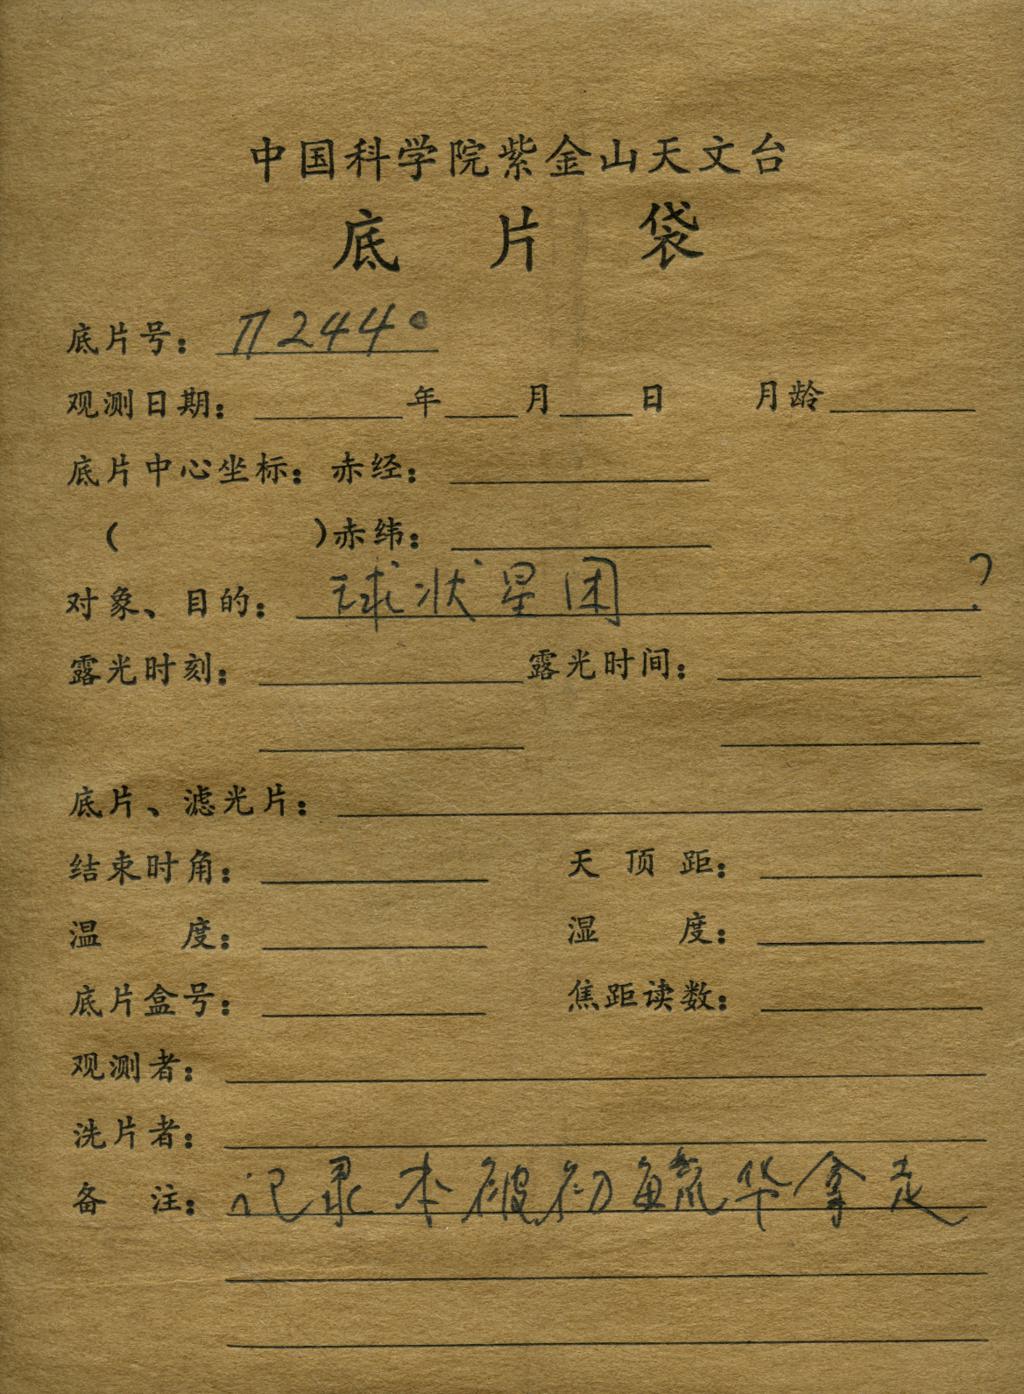 中国科学院紫金山天文台
底片袋
底片号： Π244
观测日期： 年 月 日 月龄
底片中心坐标：赤经：
（ ）赤纬：
对象、目的： 球状星团 ?
露光时刻： 露光时间：
底片、滤光片：
结束时角： 天顶距：
温度： 湿度：
底片盒号： 焦距读数：
观测者：
洗片者：
备注：记录本被初毓华拿走